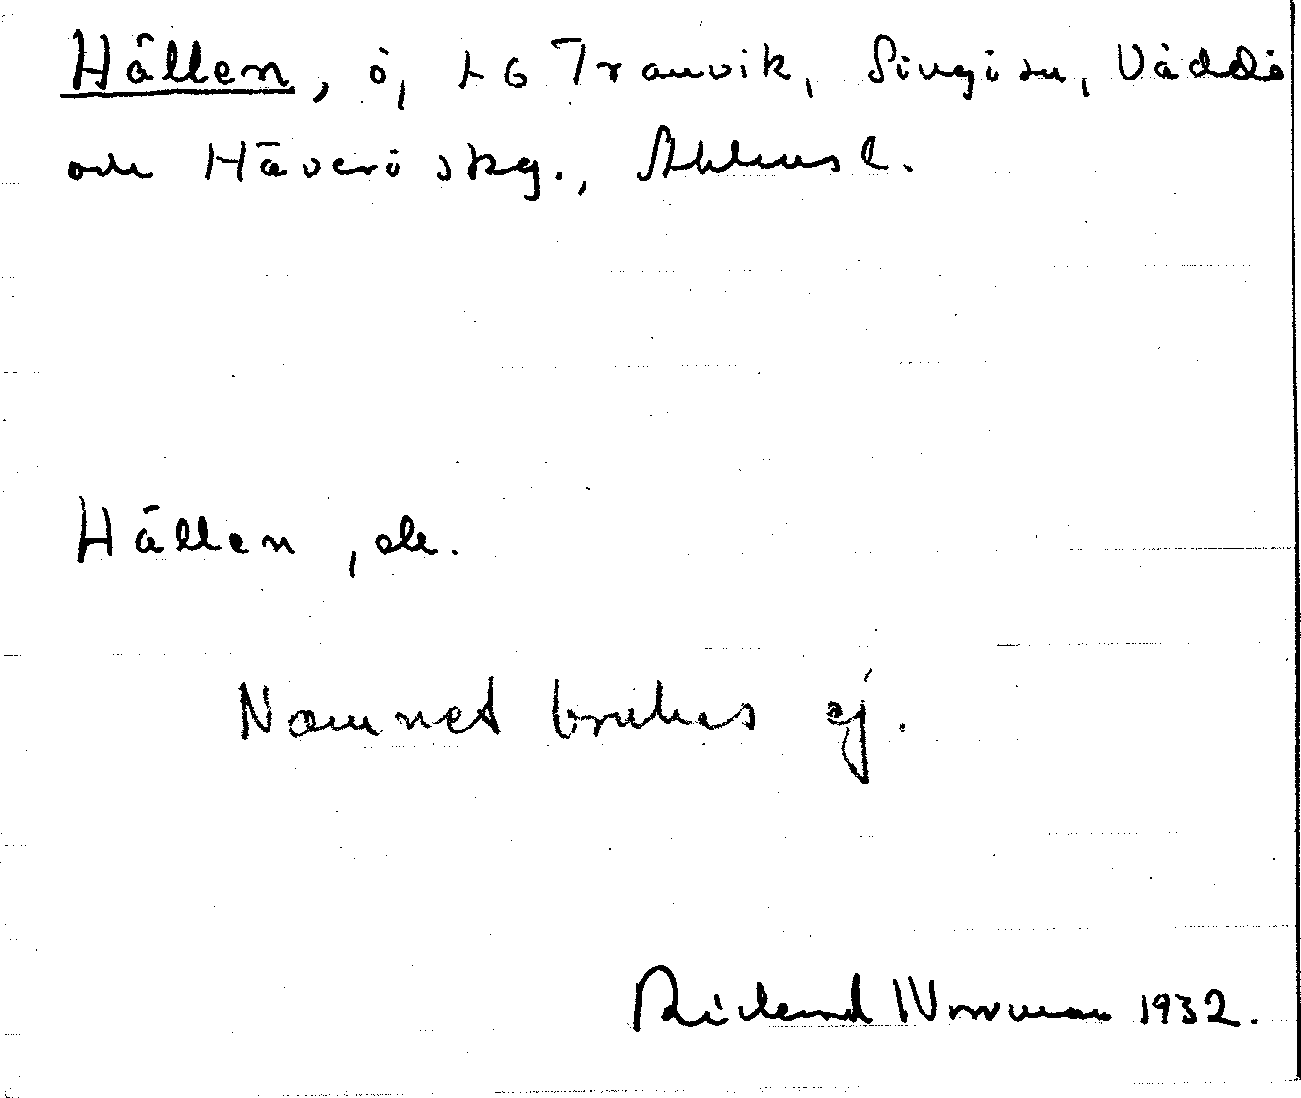 Hällen, ö, t G Tranvik, Singö sn, Väddö
och Häverö skg., Sthlms l.
Hällen, ds.
Namnet brukas ej.
Rickard Norrman 1932.